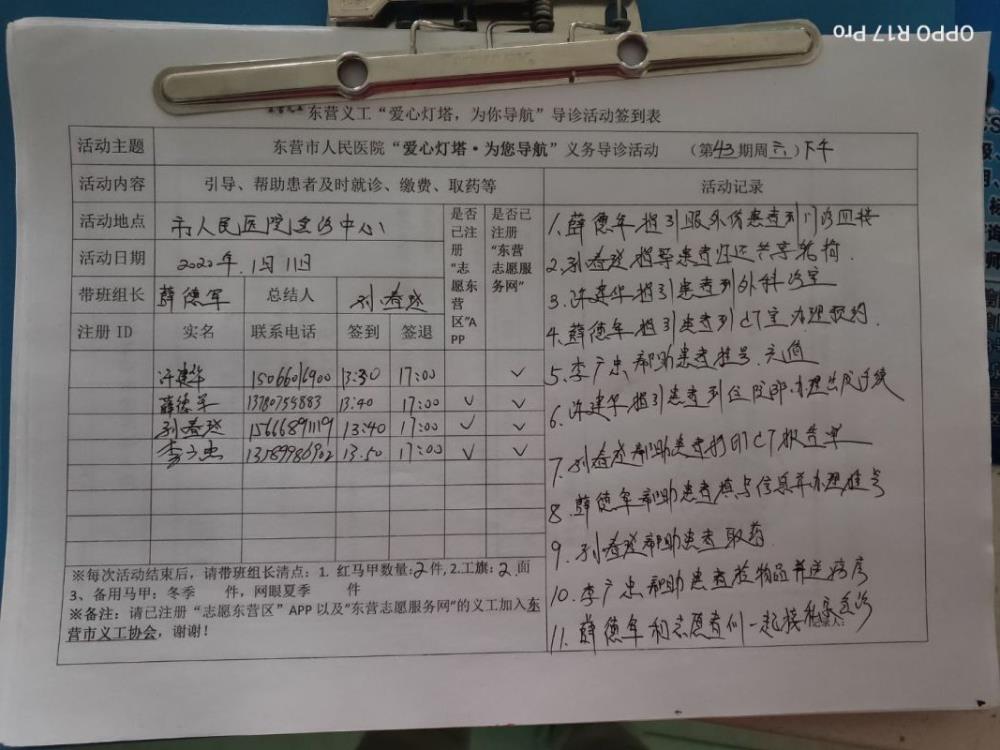 OPPO R17 Pro
东营义工“爱心灯塔，为你导航”导诊活动签到表
活动主题 东营市人民医院“爱心灯塔·为您导航”义务导诊活动 （第43期周六）下午
活动内容 引导、帮助患者及时就诊、缴费、取药等 活动记录
活动地点 市人民医院急诊中心
活动日期 2020年.1月11日
带班组长 薛德军 总结人 孙春燕
注册 ID 实名 联系电话 签到 签退 是否已注册“志愿东营区”APP 是否已注册“东营志愿服务网”
许建华 15066016900 13:30 17:00 ✓
薛德军 13780755883 13:40 17:00 ✓ ✓
孙春燕 15666891119 13:40 17:00 ✓ ✓
李广忠 13589986902 13:50 17:00 ✓ ✓
※每次活动结束后，请带班组长清点：1. 红马甲数量:2件, 2.工旗：2.面
3、备用马甲：冬季 件，网眼夏季 件
※备注：请已注册“志愿东营区”APP 以及“东营志愿服务网”的义工加入东
营市义工协会，谢谢！
1. 薛德军指引眼外伤患者到门诊四楼
2. 孙春燕指导患者归还共享轮椅.
3. 许建华指引患者到外科诊室
4. 薛德军指引患者到CT室办理预约.
5. 李广忠帮助患者挂号.充值
6. 许建华指引患者到住院部办理出院手续
7. 孙春燕帮助患者打印CT报告单
8. 薛德军帮助患者填写信息并办理挂号
9. 孙春燕帮助患者取药
10. 李广忠帮助患者捡物品并送病房
11. 薛德军和志愿者们一起接 急诊